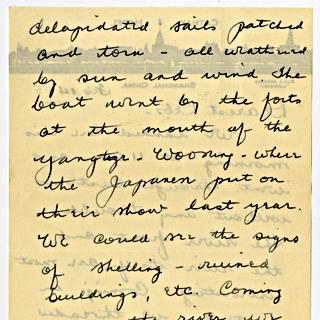 delapidated sails patched
and torn - all weathered
by sun and wind. The
boat went by the forts
at the mouth of the
Yangtze - Woosung - where
the Japanese put on
their show last year.
We could see the signs
of shelling - ruined
buildings, etc. Coming
the river we